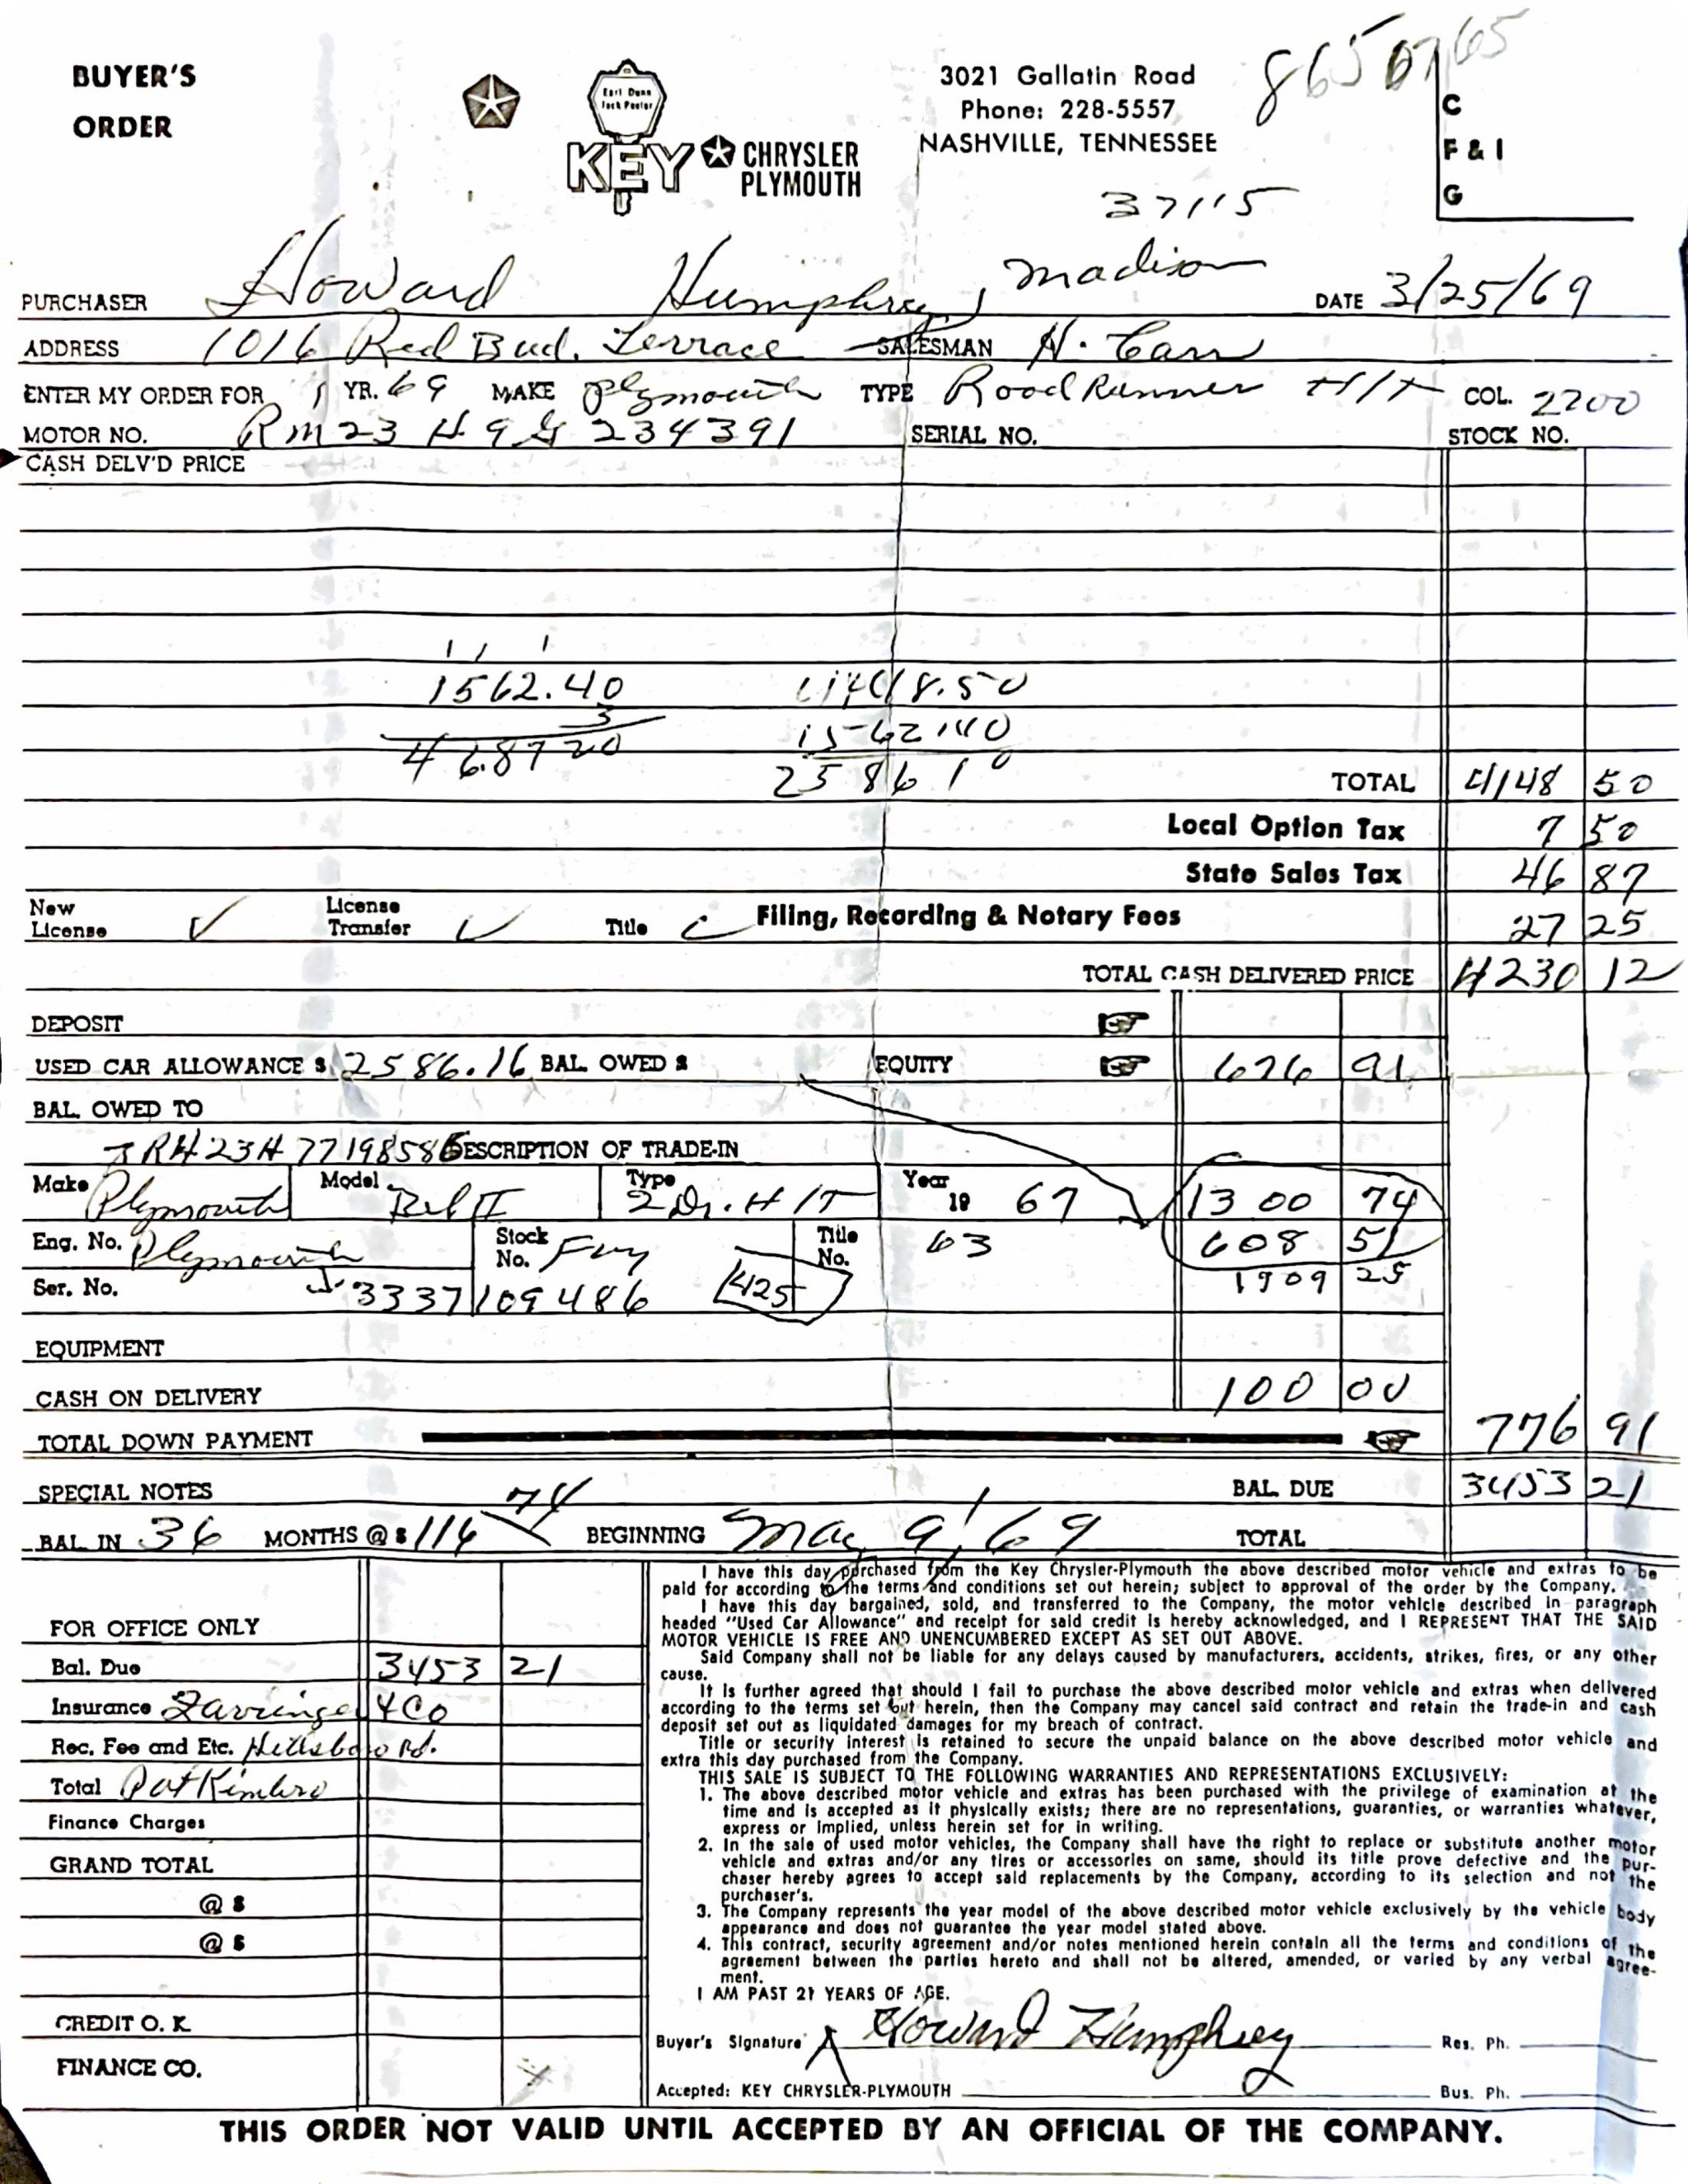 BUYER'S
ORDER
Earl Dunn
Jack Peeler
KEY CHRYSLER
PLYMOUTH
3021 Gallatin Road
Phone: 228-5557
NASHVILLE, TENNESSEE
37115
865 07 65
C
F & I
G
PURCHASER Howard Humphrey, Madison DATE 3/25/69
ADDRESS 1016 Red Bud. Terrace SALESMAN H. Carr
ENTER MY ORDER FOR 1 YR. 69 MAKE Plymouth TYPE Road Runner H/T COL. 2200
MOTOR NO. Rm23 H9G 234391 SERIAL NO. STOCK NO.
CASH DELV'D PRICE
1 1 1
1562.40 4148.50
3 1562.40
46.87 20 2586 10
TOTAL 4148 50
Local Option Tax 7 50
State Sales Tax 46 87
New License ✓ License Transfer ✓ Title Filing, Recording & Notary Fees 27 25
TOTAL CASH DELIVERED PRICE 4230 12
DEPOSIT
USED CAR ALLOWANCE $ 2586.16 BAL. OWED $ EQUITY 676 91
BAL. OWED TO
RH23H77198586 DESCRIPTION OF TRADE-IN
Make Plymouth Model Bel II Type 2 Dr. H/T Year 19 67 1300 74
Eng. No. Plymouth Stock No. Fury Title No. 63 608 51
1909 25
Ser. No. 3337109486 425
EQUIPMENT
CASH ON DELIVERY 100 00
TOTAL DOWN PAYMENT 776 91
SPECIAL NOTES BAL. DUE 3453 21
BAL. IN 36 MONTHS @ $ 116 74 BEGINNING May 9, '69 TOTAL
FOR OFFICE ONLY
Bal. Due 3453 21
Insurance & Co
Rec. Fee and Etc. Hillsboro Rd.
Total Pat Kimbro
Finance Charges
GRAND TOTAL
@ $
@ $
CREDIT O. K.
FINANCE CO.
I have this day purchased from the Key Chrysler-Plymouth the above described motor vehicle and extras to be
paid for according to the terms and conditions set out herein; subject to approval of the order by the Company.
I have this day bargained, sold, and transferred to the Company, the motor vehicle described in paragraph
headed "Used Car Allowance" and receipt for said credit is hereby acknowledged, and I REPRESENT THAT THE SAID
MOTOR VEHICLE IS FREE AND UNENCUMBERED EXCEPT AS SET OUT ABOVE.
Said Company shall not be liable for any delays caused by manufacturers, accidents, strikes, fires, or any other
cause.
It is further agreed that should I fail to purchase the above described motor vehicle and extras when delivered
according to the terms set out herein, then the Company may cancel said contract and retain the trade-in and cash
deposit set out as liquidated damages for my breach of contract.
Title or security interest is retained to secure the unpaid balance on the above described motor vehicle and
extra this day purchased from the Company.
THIS SALE IS SUBJECT TO THE FOLLOWING WARRANTIES AND REPRESENTATIONS EXCLUSIVELY:
1. The above described motor vehicle and extras has been purchased with the privilege of examination at the
time and is accepted as it physically exists; there are no representations, guaranties, or warranties whatever,
express or implied, unless herein set for in writing.
2. In the sale of used motor vehicles, the Company shall have the right to replace or substitute another motor
vehicle and extras and/or any tires or accessories on same, should its title prove defective and the pur-
chaser hereby agrees to accept said replacements by the Company, according to its selection and not the
purchaser's.
3. The Company represents the year model of the above described motor vehicle exclusively by the vehicle body
appearance and does not guarantee the year model stated above.
4. This contract, security agreement and/or notes mentioned herein contain all the terms and conditions of the
agreement between the parties hereto and shall not be altered, amended, or varied by any verbal agree-
ment.
I AM PAST 21 YEARS OF AGE.
Buyer's Signature X Howard Humphrey Res. Ph.
Accepted: KEY CHRYSLER-PLYMOUTH Bus. Ph.
THIS ORDER NOT VALID UNTIL ACCEPTED BY AN OFFICIAL OF THE COMPANY.